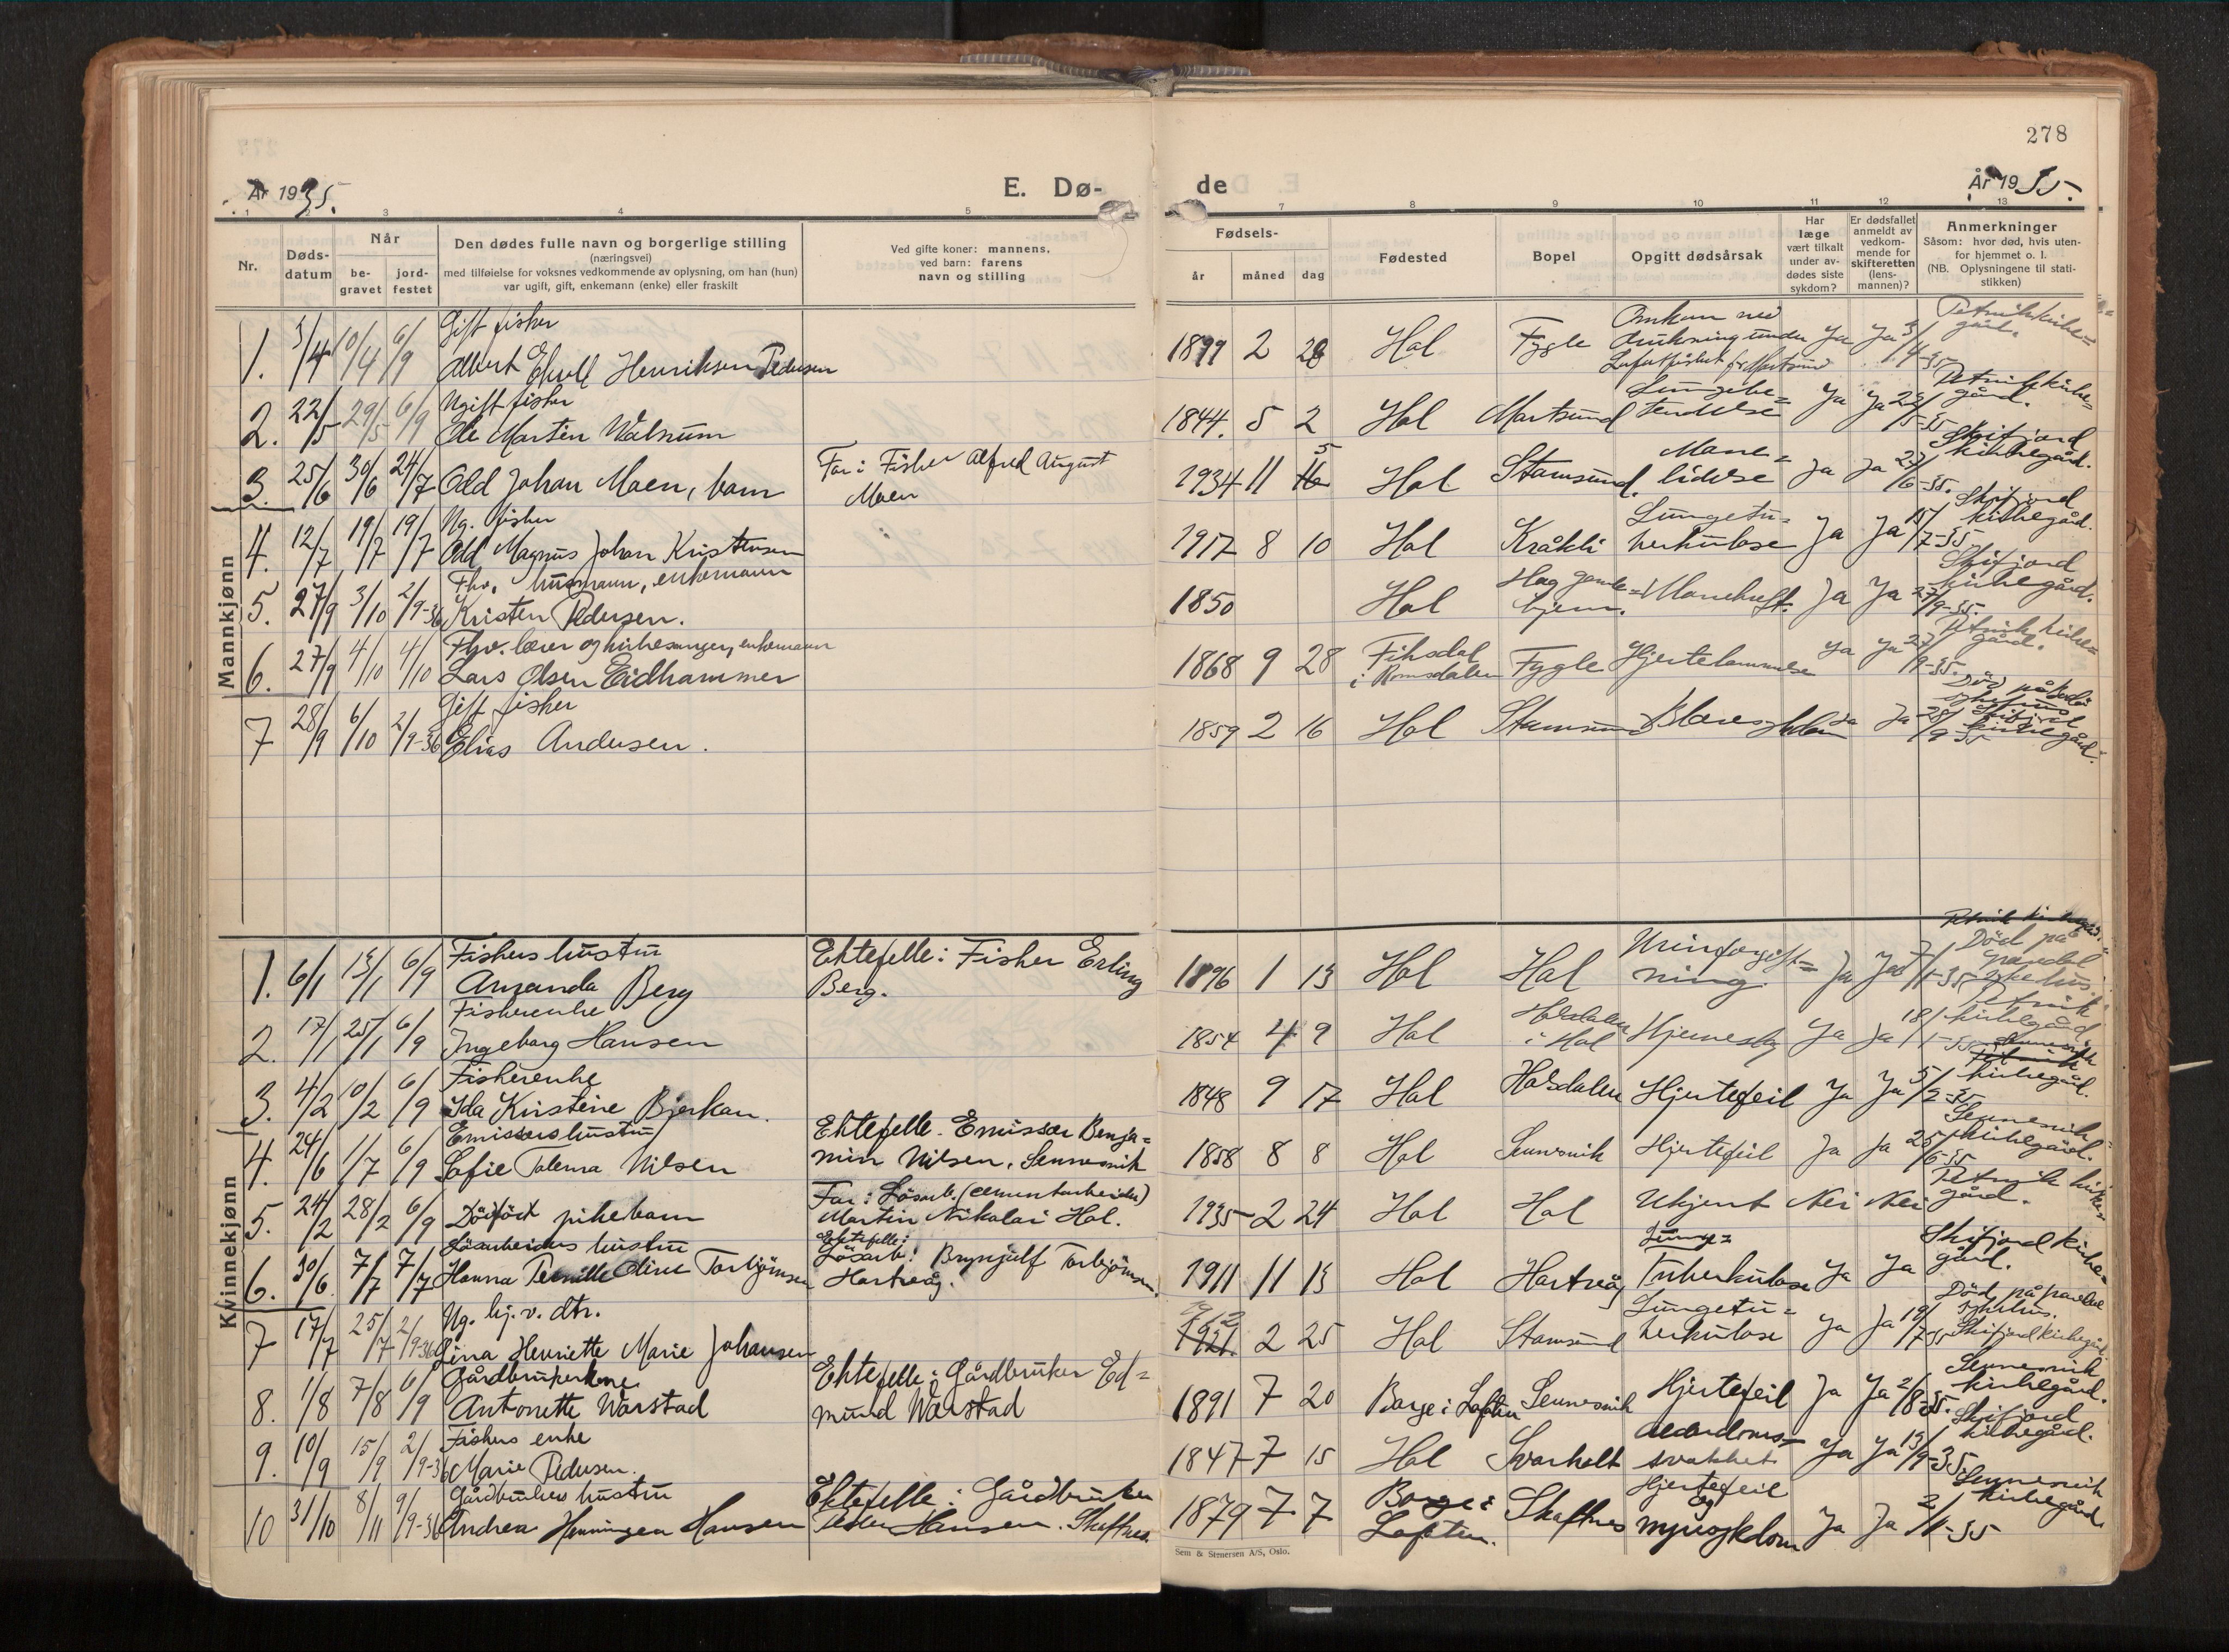 278
År 1935.
E. Dø-
de
År 1935.
1 2 3 4 5
7 8 9 10 11 12 13
Nr.
Døds-
datum
Når
be-
gravet
jord-
festet
Den dødes fulle navn og borgerlige stilling
(næringsvei)
med tilføielse for voksnes vedkommende av oplysning, om han (hun)
var ugift, gift, enkemann (enke) eller fraskilt
Ved gifte koner: mannens,
ved barn: farens
navn og stilling
Fødsels-
år måned dag
Fødested
Bopel
Opgitt dødsårsak
Har
læge
vært tilkalt
under av-
dødes siste
sykdom?
Er dødsfallet
anmeldt av
vedkom-
mende for
skifteretten
(lens-
mannen)?
Anmerkninger
Såsom: hvor død, hvis uten-
for hjemmet o. l.
(NB. Oplysningene til stati-
stikken)
Mannkjønn
Gift fisker
1. 3/4 10/4 6/9 Albert Ekvoll Henriksen Pedersen
1899 2 28 Hol Fygle
Omkom ved
drukning under
Lofotfisket fra Mortsund
Ja Ja 3/4-35
Petvik kirke=
gård.
Ugift fisker
2. 22/5 29/5 6/9 Ole Martin Walnum
1844. 5 2 Hol Mortsund
Lungebe=
tendelse
Ja Ja 22/5-35
Petvik kirke=
gård.
3. 25/6 30/6 24/7 Odd Johan Moen, barn
Far: Fisker Alfred August
Moen
1934 11 5 Hol Stamsund.
Mave=
lidelse
Ja Ja 27/6-35.
Skifjord
kirkegård.
Ug. fisker
4. 12/7 19/7 19/7 Odd Magnus Johan Kristensen
1917 8 10 Hol Kråkli
Lungetu=
berkulose
Ja Ja 15/7-35
Skifjord
kirkegård.
Fhv. husmann, enkemann
5. 27/9 3/10 2/9-36 Kristen Pedersen.
1850 Hol
Hag gamle=
hjem.
Mavekreft. Ja Ja 27/9-35.
Skifjord
kirkegård.
Fhv. lærer og kirkesanger, enkemann
6. 27/9 4/10 4/10 Lars Olsen Eidhammer
1868 9 28
Fiksdal
i Romsdalen
Fygle Hjertelammelse Ja Ja 27/9-35.
Petvik kirke=
gård.
Gift fisker
7 28/9 6/10 2/9-36 Elias Andersen.
1859 2 16 Hol Stamsund Ja Ja 28/9-35
Død på
sykehus
Skifjord
kirkegård.
Kvinnekjønn
Fiskers hustru
1. 6/1 13/1 6/9 Amanda Berg
Ektefelle: Fisker Erling
Berg.
1896 1 13 Hol Hol
Urinforgift=
ning.
Ja Ja 7/1-35
Petvik kirkegård.
Død på
Gravdal
sykehus.
Fiskerenke
2. 17/1 25/1 6/9 Ingeborg Hansen
1854 4 9 Hol
Holsdalen
i Hol
Hjerneslag Ja Ja 18/1-35
Petvik
kirkegård.
Fiskerenke
3. 4/2 10/2 6/9 Ida Kristine Bjerkan.
1848 9 17 Hol Holsdalen Hjertefeil Ja Ja 5/2-35
Petvik
kirkegård.
Emissærs hustru
4. 24/6 1/7 6/9 Sofie Talena Nilsen
Ektefelle. Emissær Benja=
min Nilsen, Sennesvik
1858 8 8 Hol Sennesvik Hjertefeil Ja Ja 25/6-35
Sennesvik
kirkegård.
5. 24/2 28/2 6/9 Dødfødt pikebarn
Far: Løsarb. (cementarbeider)
Martin Nikolai Hol.
1935 2 24 Hol Hol Ukjent Nei Nei
Petvik kirke=
gård.
Løsarbeiders hustru
6. 30/6. 7/7 7/7 Hanna Pernille Oline Torbjørnsen
Ektefelle:
Løsarb: Brynjulf Torbjørnsen
Hartvåg.
1911 11 13 Hol Hartvåg
Lunge=
tuberkulose
Ja Ja
Skifjord kirke=
gård.
Ug. hj. v. dtr.
7 17/7 25/7 2/9-36 Lina Henriette Marie Johansen
1912 1921. 2 25 Hol Stamsund
Lungetu=
berkulose
Ja Ja 19/7-35
Død på Gravdal
sykehus.
Skifjord kirkegård
Gårdbrukerkone
8. 1/8 7/8 6/9 Antonette Warstad
Ektefelle: Gårdbruker Ed=
mund Warstad
1891 7 20 Borge i Lofoten Sennesvik Hjertefeil Ja Ja 2/8-35.
Sennesvik
kirkegård.
Fiskers enke
9. 10/9 15/9 2/9-36 Marie Pedersen.
1847 7 15 Hol Svarholt
Alderdoms=
svakhet
Ja Ja 13/9-35.
Skifjord
kirkegård.
Gårdbrukers hustru
10 31/10 8/11 9/9-36 Andrea Henningea Hansen
Ektefelle: Gårdbruker
Peder Hansen. Skaftnes.
1879 7 7
Borge i
Lofoten.
Skaftnes
Hjertefeil
og
Ja Ja 2/11-35
Sennesvik
kirkegård.
Sem & Stenersen A/S, Oslo.